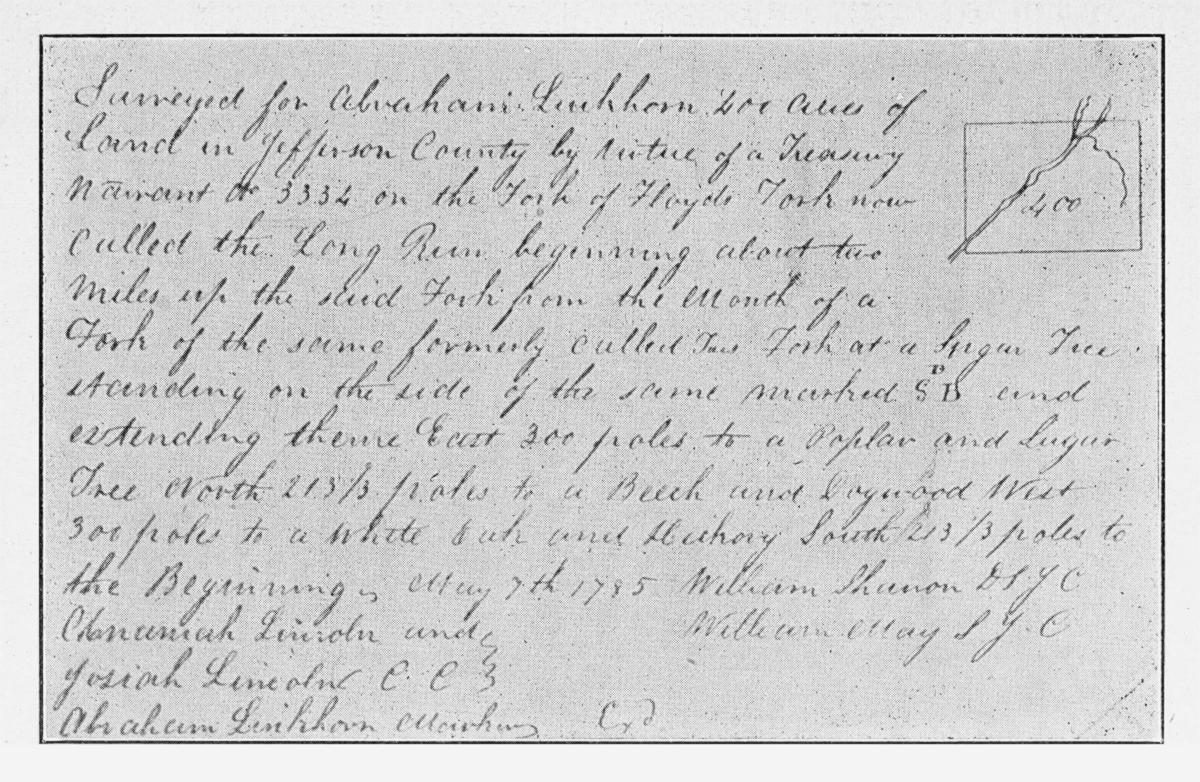 Surveyed for Abraham Linkhorn 400 acres of
Land in Jefferson County by virtue of a Treasury
Warrant No 3334 on the Fork of Floyds Fork now
called the Long Run beginning about two
miles up the said Fork from the Mouth of a
400
Fork of the same formerly called Fork at a Sugar Tree
standing on the side of the same marked S D B and
extending thence East 300 poles to a Poplar and Sugar
Tree North 213 1/3 poles to a Beech and Dogwood West
300 poles to a White Oak and Hickory South 213 1/3 poles to
the Beginning May 7th 1785 William Shanon D S J C
Annaniah Lincoln and William May S J C
Josiah Lincoln C C
Abraham Linkhorn Marker